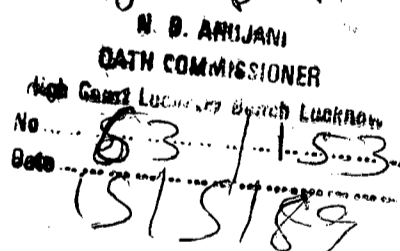 N. D. AHUJANI
OATH COMMISSIONER
High Court Lucknow Bench Lucknow
No ... 53/153
Date ... 15/5/89